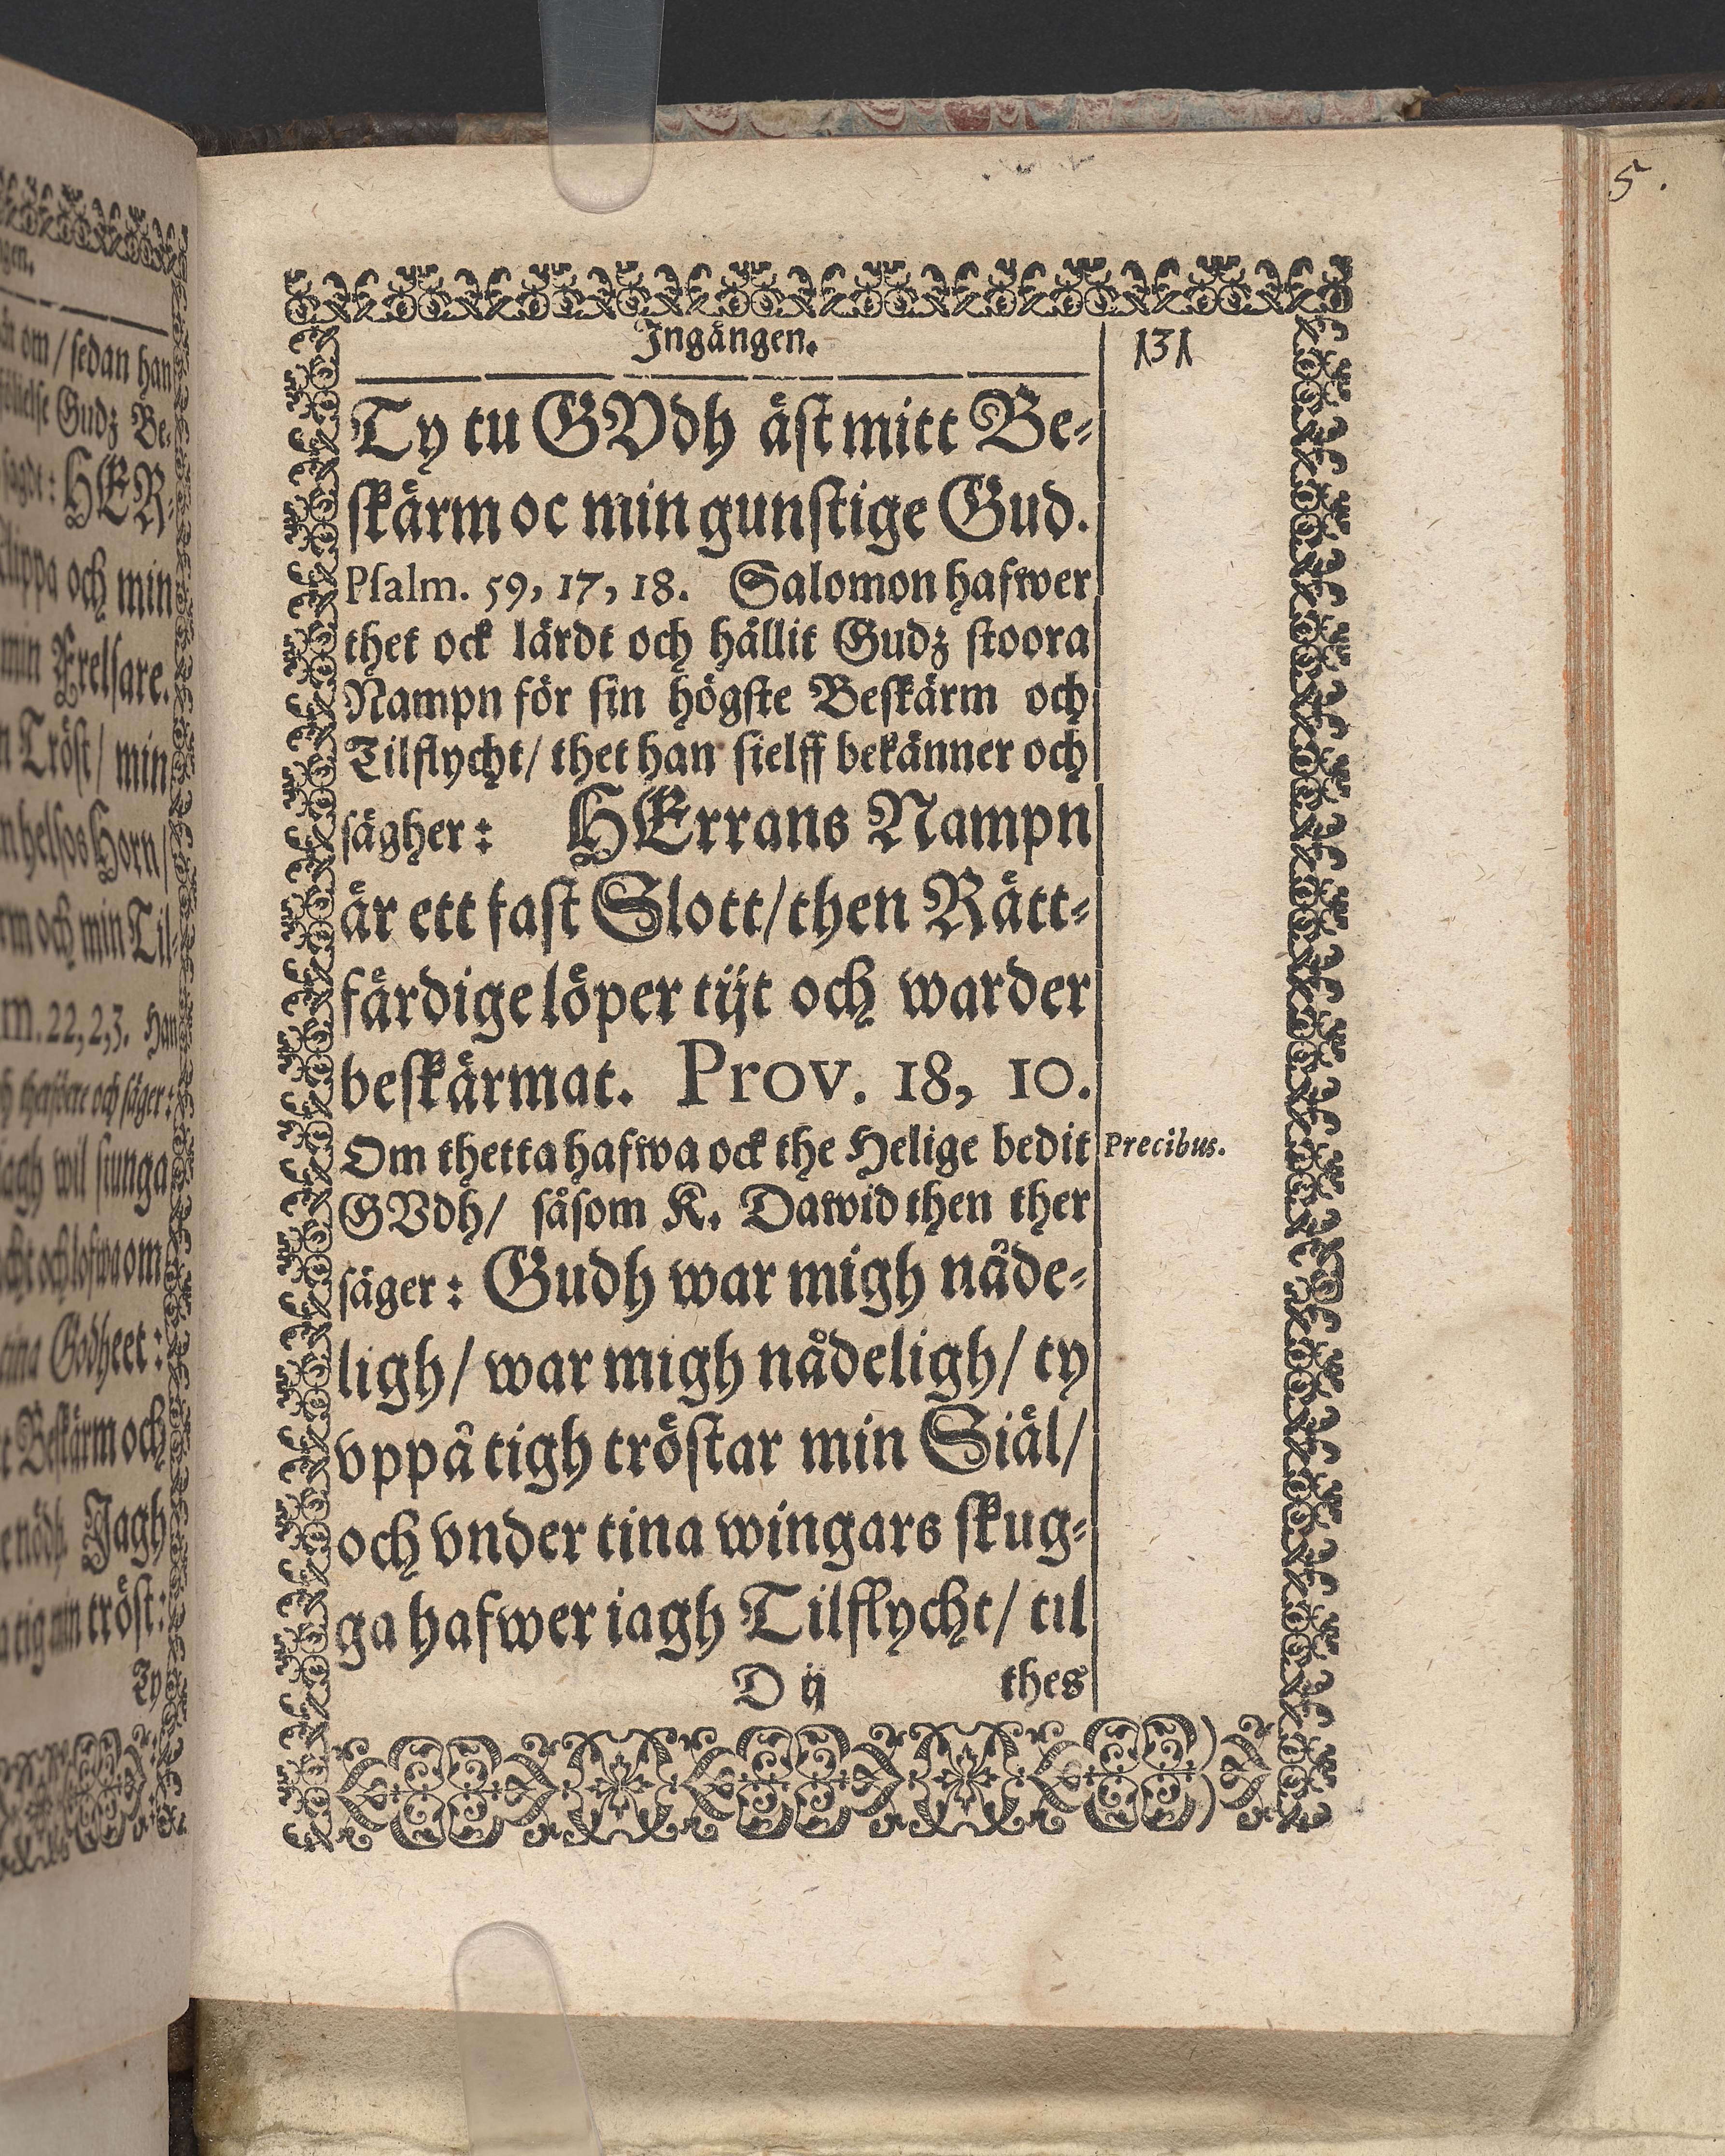 gen.
om / sedan han
Gudz Be-
sagdt: HER-
klippa och min
min Frelsare.
Tröst / min
helsos Horn /
och min Til-
m. 22, 2, 3. Han
och säger:
jagh wil siunga
och lofwa om
tina Godheet:
Beskärm och
nödh. Jagh
tig min tröst:
Ty
5.
Ingången.
131
Ty tu GVdh äst mitt Be-
skärm oc min gunstige Gud.
Psalm. 59, 17, 18. Salomon hafwer
thet ock lärdt och hållit Gudz stoora
Nampn för sin högste Beskärm och
Tilflycht / thet han sielff bekänner och
sägher: HErrans Nampn
är ett fast Slott / then Rätt-
färdige löper tijt och warder
beskärmat. Prov. 18, 10.
Om thetta hafwa ock the Helige bedit
Precibus.
GVdh / såsom K. Dawid then ther
säger: Gudh war migh nåde-
ligh / war migh nådeligh / ty
vppå tigh tröstar min Siäl /
och vnder tina wingars skug-
ga hafwer iagh Tilflycht / til
D ij thes